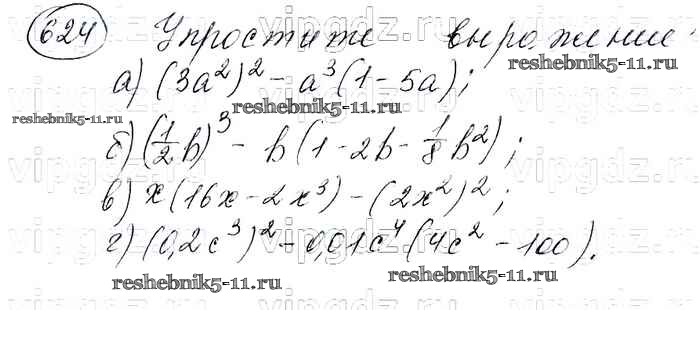 624 Упростите выражение:
а) (3a²)² - a³(1-5a);
б) (1/2 b)³ - b(1-2b-1/8 b²);
в) x(16x-2x³)-(2x²)²;
г) (0,2c³)²-0,01c⁴(4c²-100).
reshebnik5-11.ru
reshebnik5-11.ru
reshebnik5-11.ru
reshebnik5-11.ru
reshebnik5-11.ru
vipgdz.ru